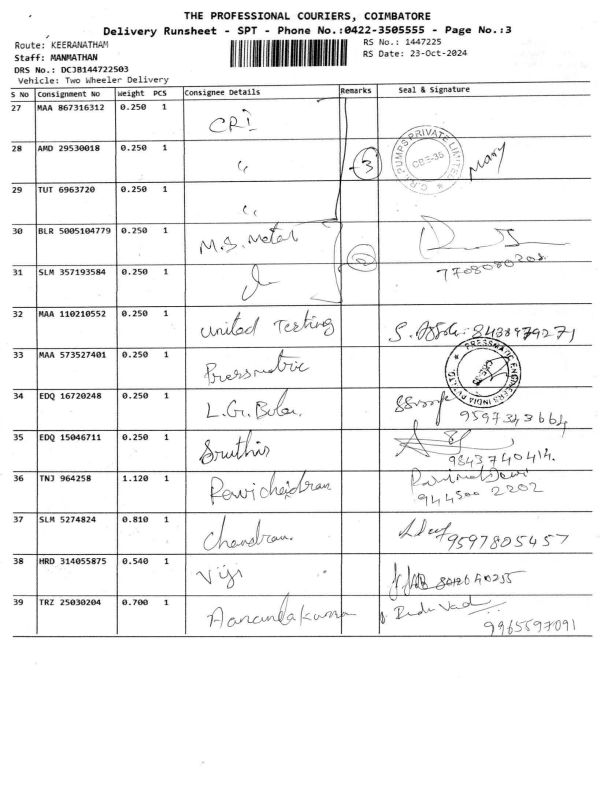 THE PROFESSIONAL COURIERS, COIMBATORE
Delivery Runsheet - SPT - Phone No.:0422-3505555 - Page No.:3
Route: KEERANATHAM
RS No.: 1447225
Staff: MANMATHAN
RS Date: 23-Oct-2024
DRS No.: DCJB144722503
Vehicle: Two Wheeler Delivery
S No Consignment No Weight PCS Consignee Details Remarks Seal & Signature
27 MAA 867316312 0.250 1 CRI
28 AMD 29530018 0.250 1 " 3 C.R.I. PUMPS PRIVATE LIMITED CBE-35 Mary
29 TUT 6963720 0.250 1 "
30 BLR 5005104779 0.250 1 M.S. Metal
31 SLM 357193584 0.250 1 2
32 MAA 110210552 0.250 1 United Testing 8438979271
33 MAA 573527401 0.250 1 Pressmatic PRESSMATIC ENGINEERS INDIA PVT LTD
34 EDQ 16720248 0.250 1 L.G. 9597343664
35 EDQ 15046711 0.250 1 Sruthi 9843740414.
36 TNJ 964258 1.120 1 944500 2202
37 SLM 5274824 0.810 1 Chandran. 9597805457
38 HRD 314055875 0.540 1 Viji
39 TRZ 25030204 0.700 1 Aanandakumar 9965597091